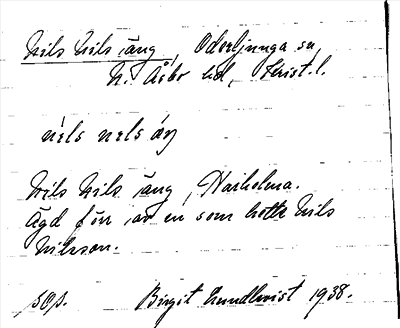 Nils Nils äng, Oderljunga sn,
N. Åsbo hd, Krist. l.
nils nils äŋ
Nils Nils äng, Harholma.
Ägd förr av en som hette Nils
Nilsson.
sOs. Birgit Lundkvist 1938.